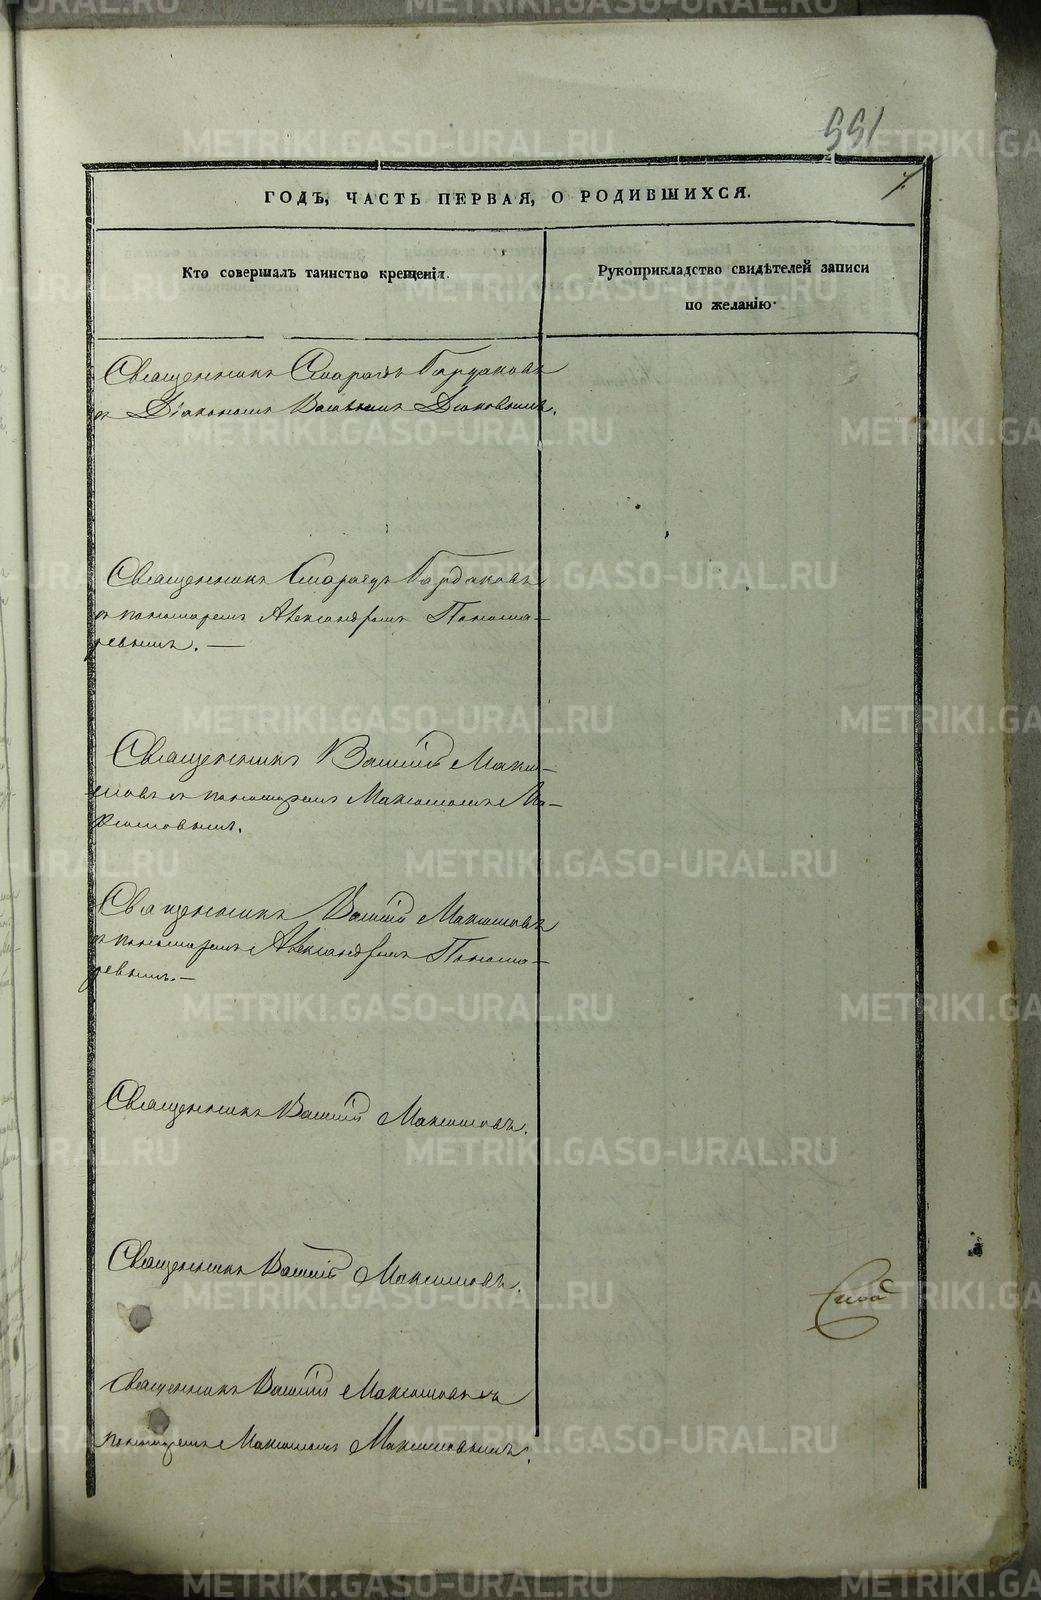 551
ГОДЪ, ЧАСТЬ ПЕРВАЯ, О РОДИВШИХСЯ.
Кто совершалъ таинство крещенія.
Рукоприкладство свидѣтелей записи
по желанію.
Священникъ
съ Діакономъ
Священникъ
съ пономаремъ Александромъ Понома-
ревымъ. —
Священникъ Василій Макси-
мовъ съ пономаремъ Максимомъ Ма-
ксимовымъ.
Священникъ Василій Максимовъ
съ пономаремъ Александромъ Понома-
ревымъ. —
Священникъ Василій Максимовъ.
Священникъ Василій Максимовъ.
Священникъ Василій Максимовъ съ
пономаремъ Максимомъ Максимовымъ.
METRIKI.GASO-URAL.RU